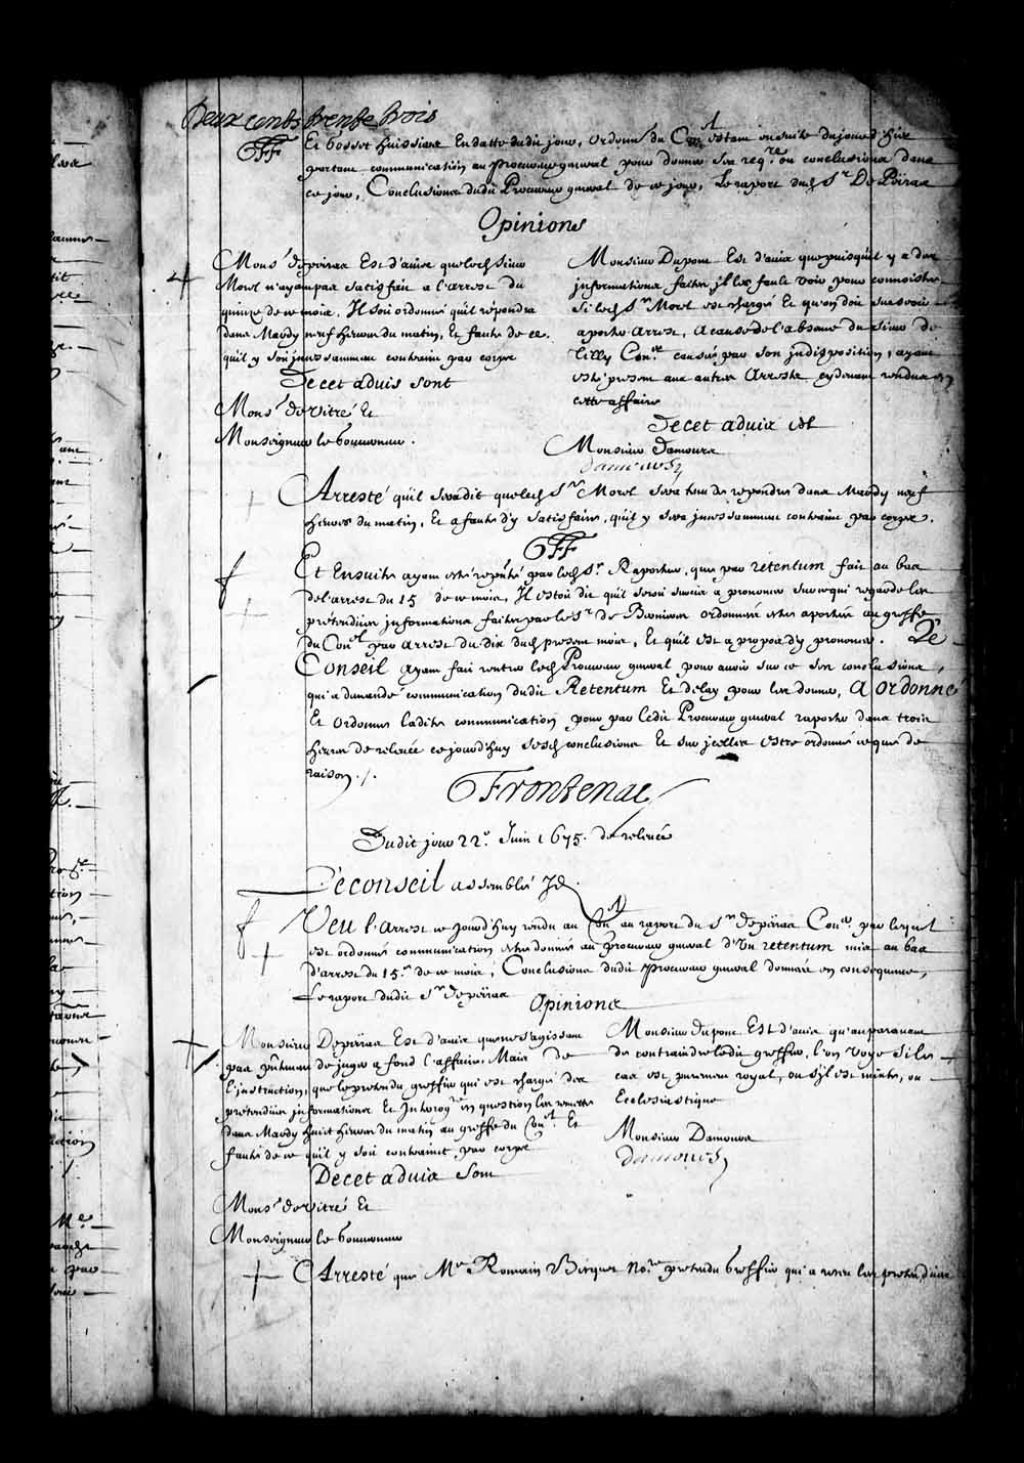 Deux cents trente trois
Et Gosset huissiers En datte dudit jour, Ordonn. du Con.el estant ensuite du jourd'huy
portant communication au procureur general pour donner son req.re ou conclusions dans
ce jour, Conclusions dudit Procureur general de ce jour, Le raport dud. S.r De Peiras
Opinions
Mons.r depeiras Est d'auis que led. sieur
Morel n'ayant pas satisfait a l'arrest du
quinze de ce mois, Il soit ordonné qu'il répondra
dans Mardy neuf heures du matin, Et faute de ce
quil y soit incessamment contraint par corps
De cet aduis sont
Mons.r de vitré Et
Monseigneur le Gouuerneur.
Monsieur Dupont Est d'auis que puisquil y a des
informations faites, jl les faut voir pour connoistre
si led. S.r Morel est chargé Et qu'on doit surseoir
aporter arrest, a cause de l'absence du sieur de
Tilly Con.er causée par son jndisposition, ayant
esté present aux autres Arrests cydeuant rendus en
cette affaire
De cet aduis est
Monsieur Damours
damours
Arresté qu'il sera dit que led. S.r Morel sera tenu de repondre dans Mardy neuf
heures du matin, Et a faute d'y satisfaire, qu'il y sera jncessamment contraint par corps.
Et Ensuite ayant esté repnté par led. S.r Raporteur, que par retentum fait au bas
de l'arrest du 15 de ce mois, Il estoit dit quil seroit sursis a prononcer sur ce qui regarde les
pretendües jnformations faites par le S.r de Bernieres ordonnées estre aportées au greffe
du Con.el par arrest du dix dud. present mois, Et quil est a propos dy prononcer. Le
Conseil ayant fait rentrer led. Procureur general pour auoir sur ce ses conclusions,
qui a demandé communication dudit Retentum Et delay pour les donner, a ordonné
Et Ordonne ladite communication pour par ledit Procureur general raporter dans trois
heures de releuée ce jourd'huy sesd. conclusions Et sur jcelles estre ordonné ce que de
raison ./.
Frontenac
Dudit jour 22.e Juin 1675. de releuée
Le conseil assemblé
Veu l'arrest ce jourd'huy rendu au Con.el au raport du S.r depeiras Con.er par lequel
est ordonné communication estre donnée au procureur general d'Un retentum mis au bas
d'arrest du 15.e de ce mois, Conclusions dudit procureur general données en consequence,
Le raport dudit S.r depeiras
Opinions
Monsieur Depeiras Est d'auis que ne s'agissant
pas pntement de juger a fond l'affaire, Mais de
l'instruction, que le pretendu greffier qui est chargé des
pretendües jnformations Et Interog.re en question les remettra
dans Mardy huit heures du matin au greffe du Con.el Et
faute de ce quil y soit contraint par corps
De cet aduis sont
Mons.r de vitré Et
Monseigneur le Gouuerneur
Monsieur dupont Est d'auis qu'auparauant
de contraindre ledit greffier, l'on voye si le
cas est purement royal, ou s'il est mixte, ou
Ecclesiastique
Monsieur Damours
damours
Arresté que M.e Romain Becquet No.re pretendu Greffier qui a receu les pretendües